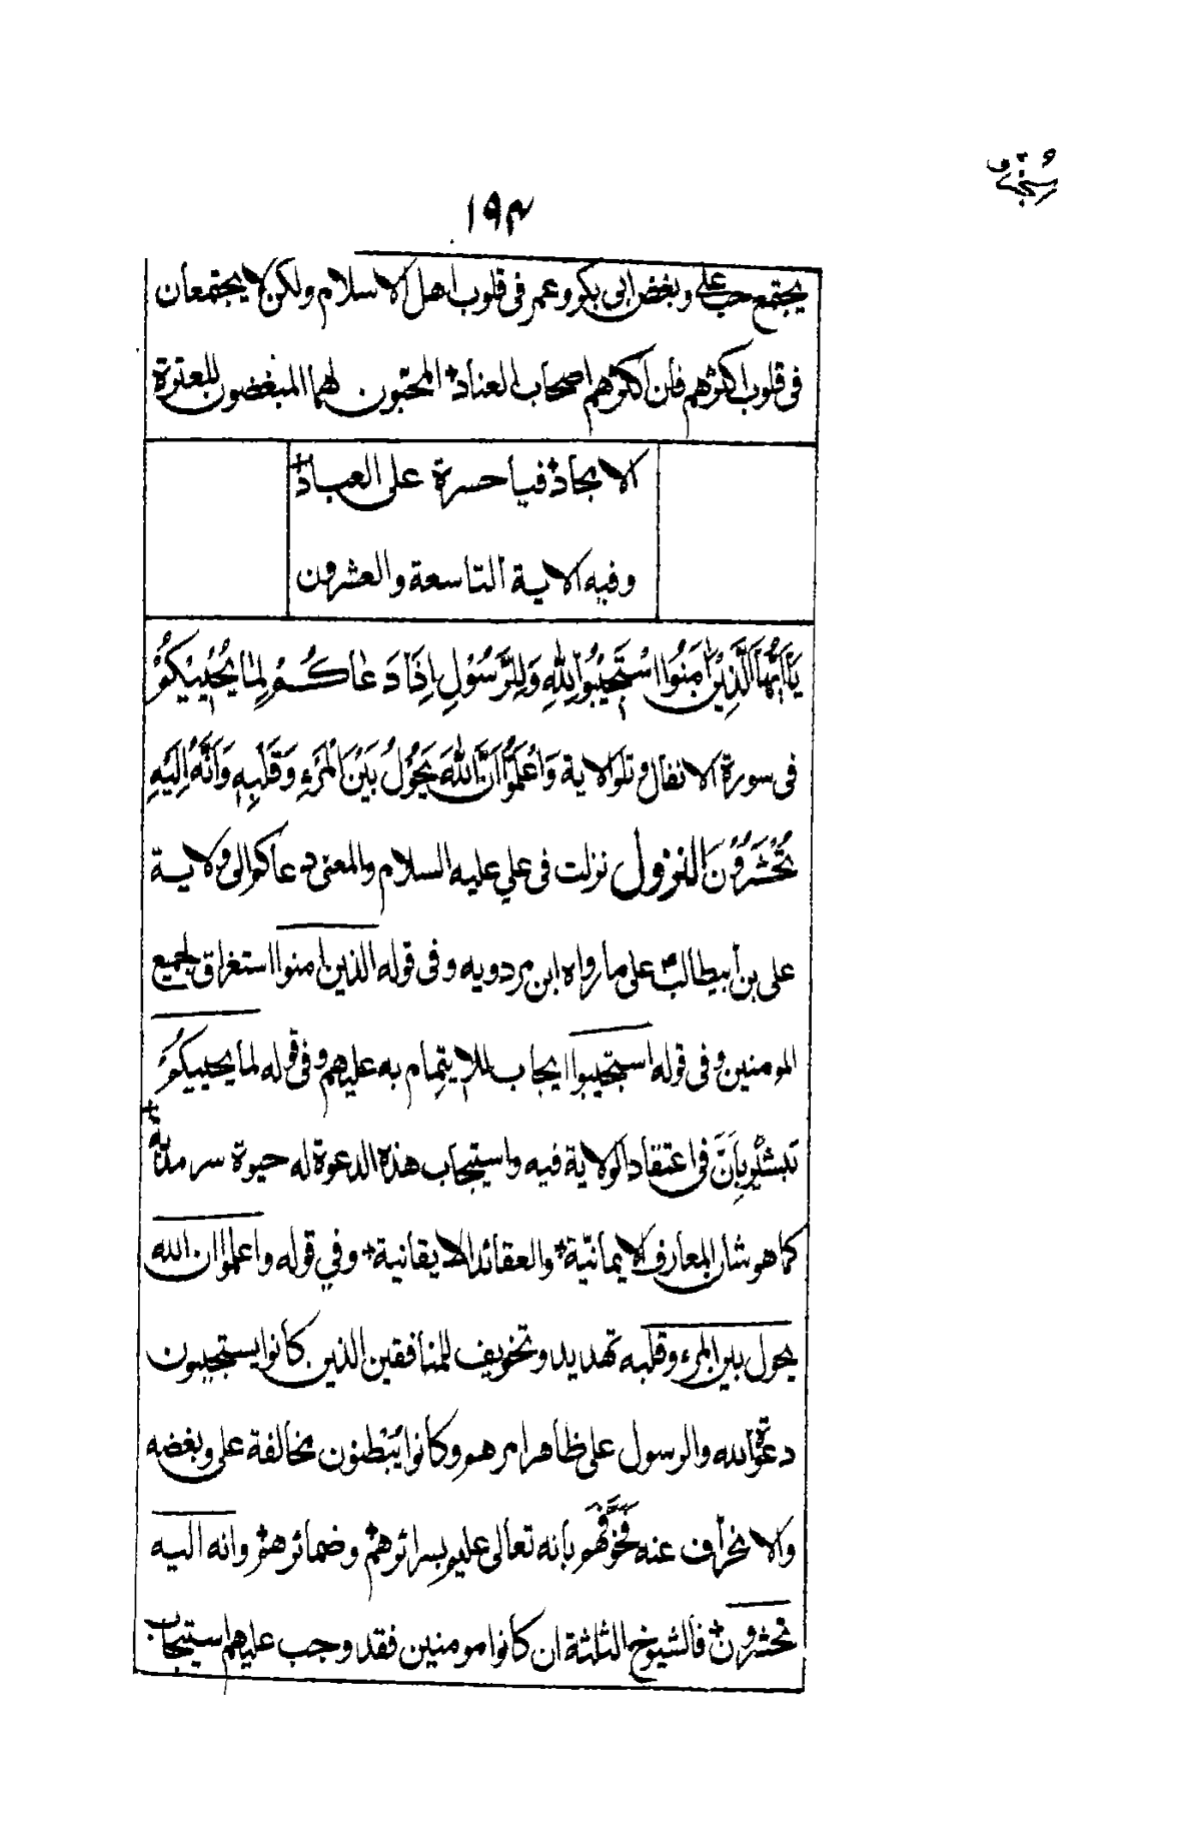 ١٩٣
يجتمع حب علي وبغض ابي بكر وعمر في قلوب اهل الاسلام ولكن لا يجتمعان
في قلوب اكثرهم فان اكثرهم اصحاب العناد المحبون لهما المبغضون للعترة
الامجاد فيا حسرة على العباد
وفيه الاية التاسعة والعشرون
يَا اَيُّهَا الَّذِيْنَ اٰمَنُوا اسْتَجِيْبُوا لِلّٰهِ وَلِلرَّسُوْلِ اِذَا دَعَاكُمْ لِمَا يُحْيِيْكُمْ
في سورة الانفال وتلو الاية وَاعْلَمُوْا اَنَّ اللّٰهَ يَحُوْلُ بَيْنَ الْمَرْءِ وَقَلْبِهِ وَاَنَّهُ اِلَيْهِ
تُحْشَرُوْنَ النزول نزلت في علي عليه السلام والمعنى دعاكم الى ولاية
علي بن ابيطالب على ما رواه ابن مردويه وفي قوله الذين امنوا استغراق لجميع
المومنين وفي قوله استجيبوا ايجاب للايتمام به عليهم وفي قوله لما يحييكم
تبشير بِاَنَّ في اعتقاد الولاية فيه واستيجاب هذه الدعوة له حيوة سرمدية
كما هو شان المعارف الايمانيّة والعقائد الايقانية وفي قوله واعلموا ان الله
يحول بين المرء وقلبه تهديد وتخويف للمنافقين الذين كانوا يستجيبون
دعوة الله والرسول على ظاهر امرهم وكانوا يُبْطنون مخالفة علي وبغضه
والانحراف عنه فَخَوَّفَهُم بانه تعالى عليم بسرائرهم وضمائرهم وانه اليه
تحشرون فالشيوخ الثلثة ان كانوا مومنين فقد وجب عليهم استيجاب